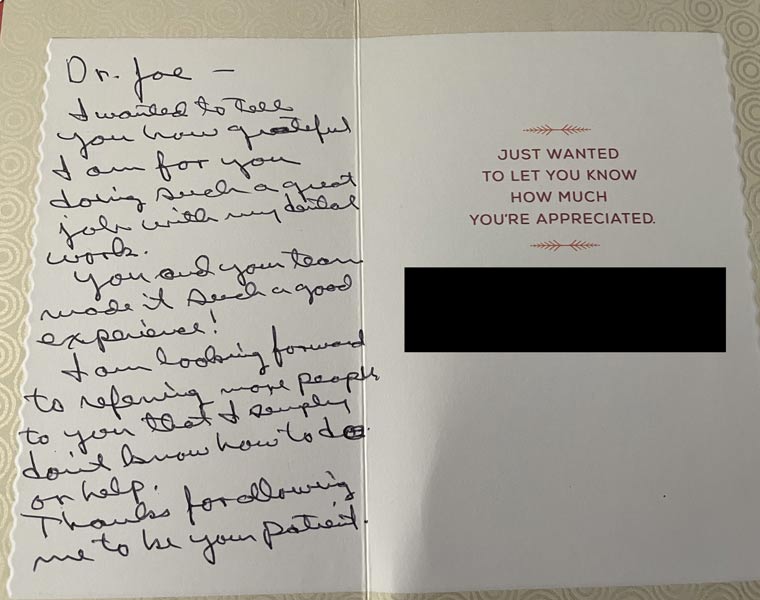 Dr. Joe –
I wanted to tell
you how grateful
I am for you
doing such a great
job with my dental
work.
You and your team
made it such a good
experience!
I am looking forward
to referring more people
to you that I simply
don't know how to do
or help.
Thanks for allowing
me to be your patient.
JUST WANTED
TO LET YOU KNOW
HOW MUCH
YOU'RE APPRECIATED.